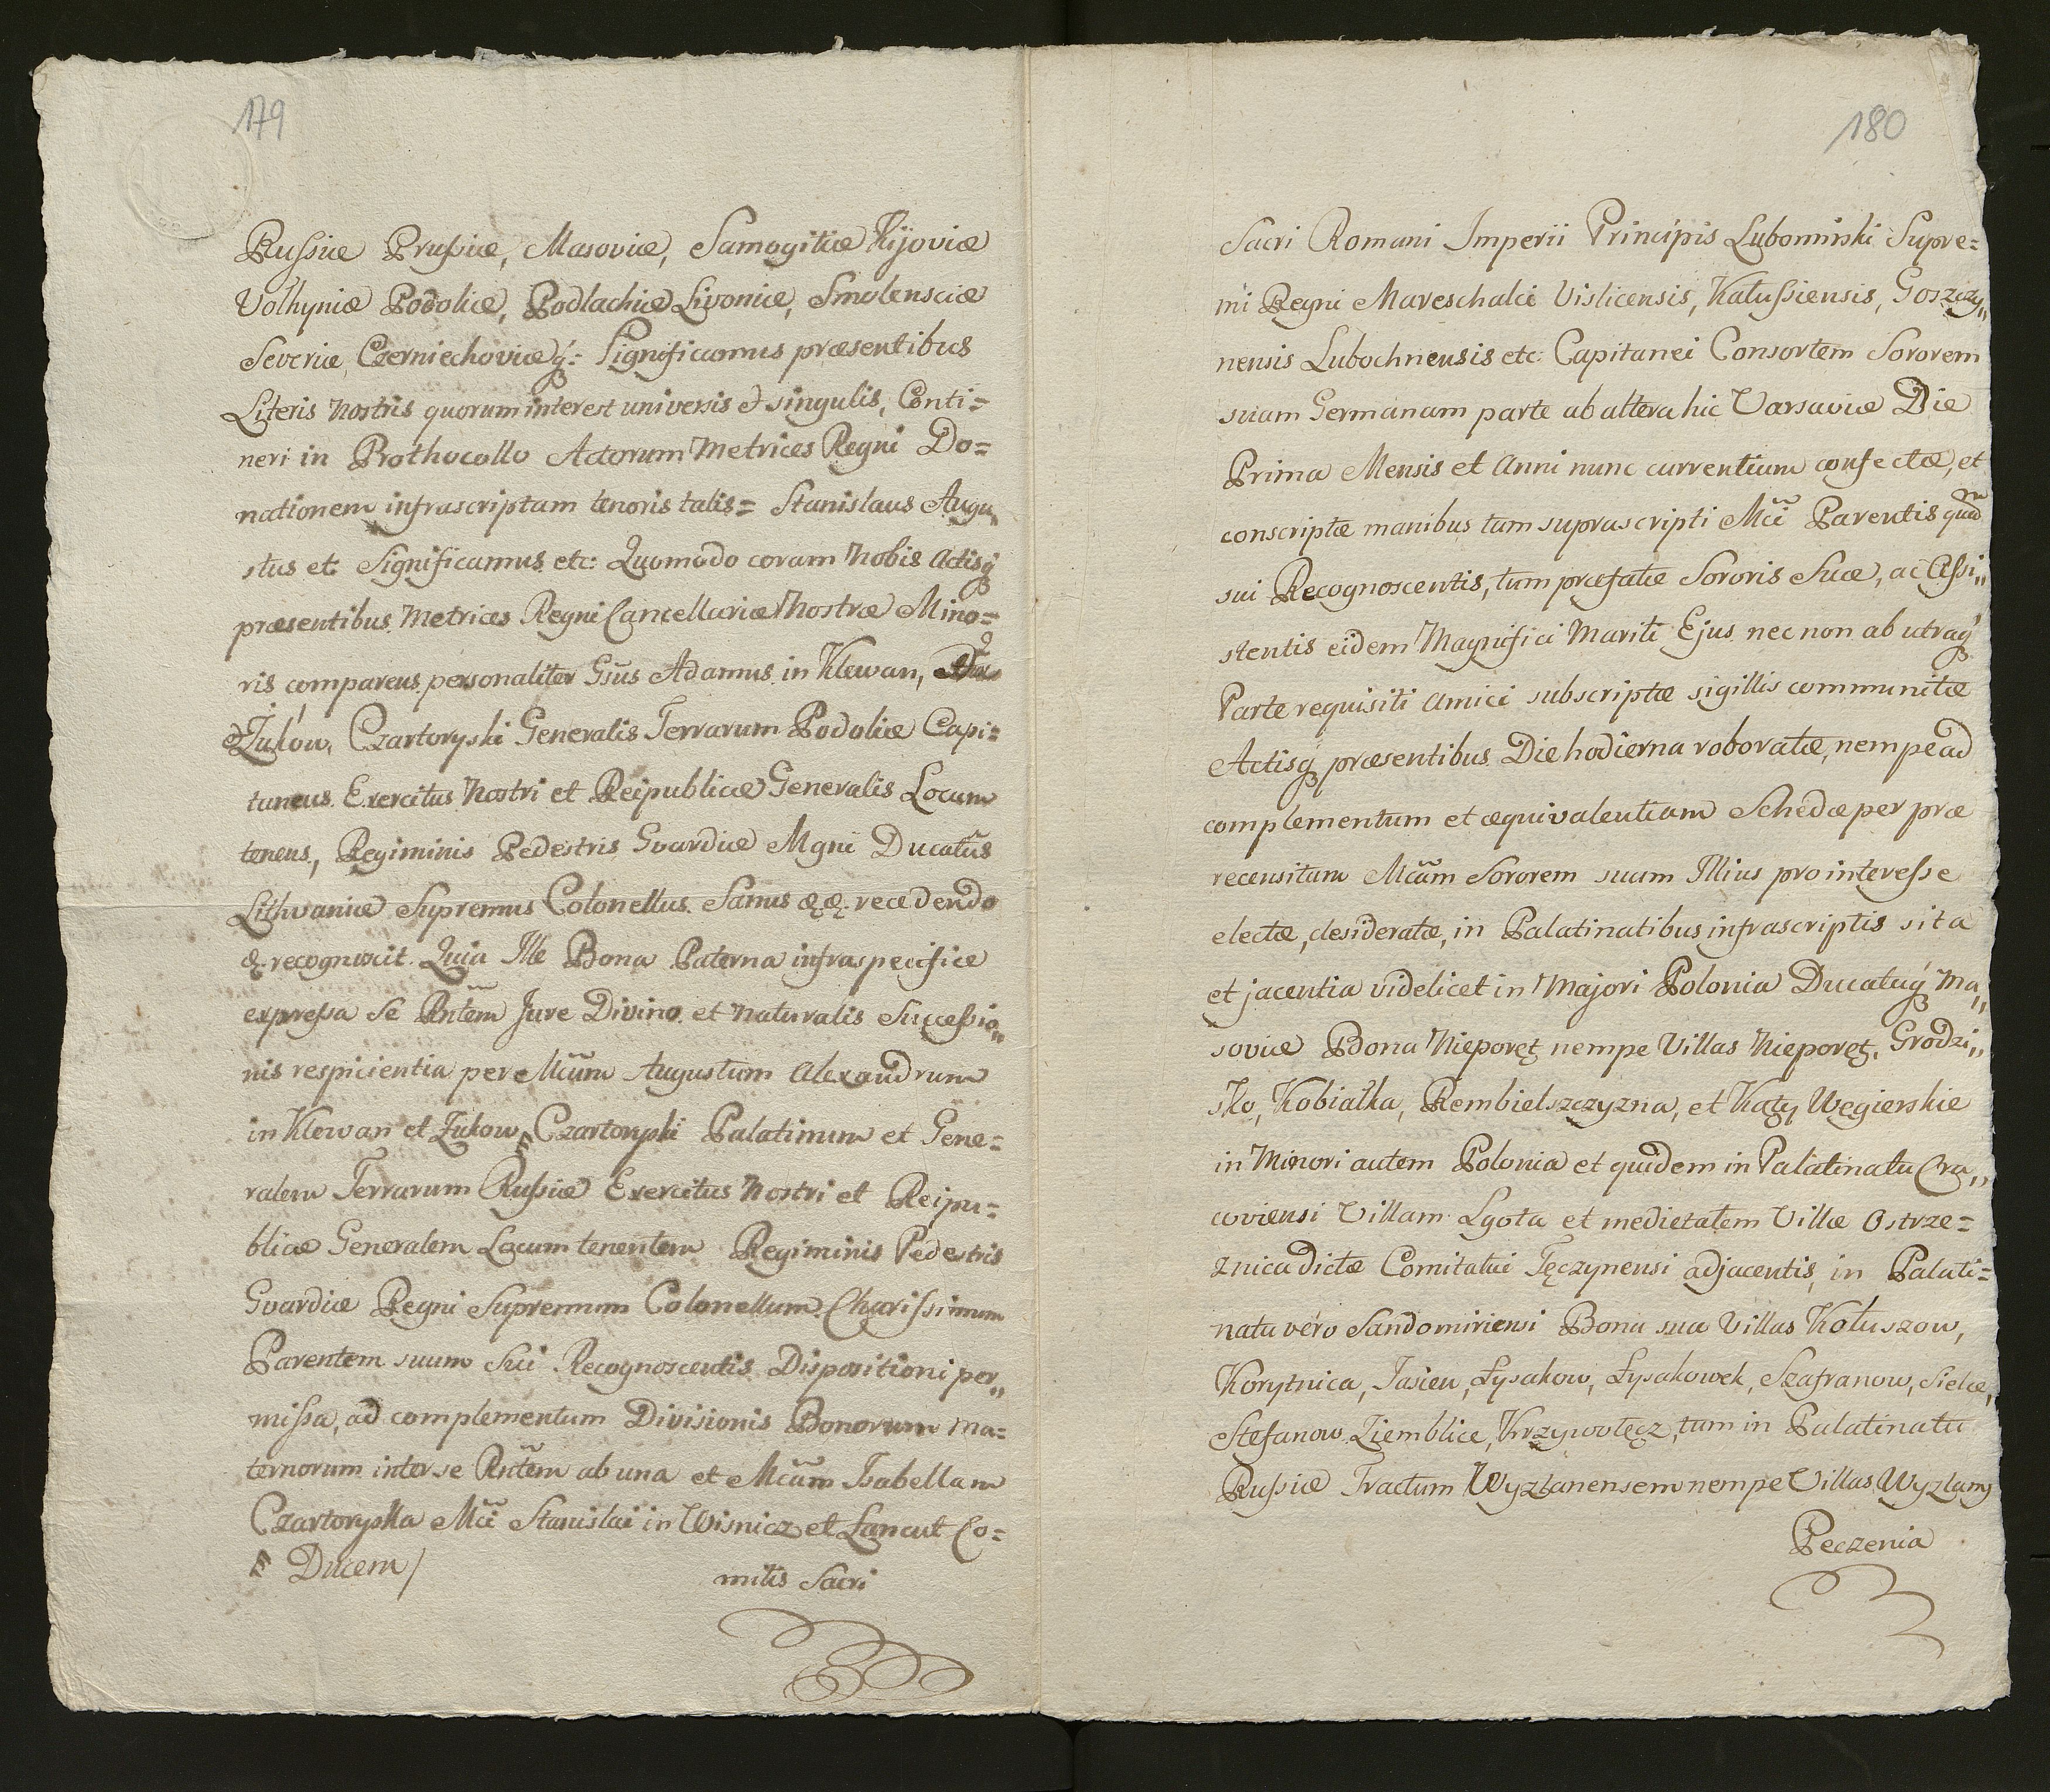 179
Russiæ Prussiæ, Masoviæ, Samogitiæ Kijoviæ
Volhyniæ Podoliæ, Podlachiæ Livoniæ, Smolensciæ
Severiæ, Czerniechoviæq́: Significamus præsentibus
Literis Nostris quorum interest universis & singulis, Conti=
neri in Prothocollo Actorum Metrices Regni Do=
nationem infrascriptam tenoris talis= Stanislaus Augu„
stus et: Significamus etc: Quomodo coram Nobis Actisq́
præsentibus Metrices Regni Cancellariæ Nostræ Mino=
ris comparens personaliter Gsūs Adamus in Klewan,
& Żuków, Czartoryski Generalis Terrarum Podoliæ Capi=
taneus Exercitus Nostri et Reipublicæ Generalis Locum
tenens, Regiminis Pedestris Gvardiæ Mgni Ducatūs
Lithvaniæ Supremus Colonellus Sanus &&. recedendo
& recognoscit. Quia Ille Bona Paterna infraspecifice
expressa Se Rntēm Jure Divino et Naturalis Successio„
nis respicientia per Mcūm Augustum Alexandrum
in Klewan et Żukow Czartoryski Palatinum et Gene=
ralem Terrarum Russiæ Exercitus Nostri et Reipu=
blicæ Generalem Locum tenentem Regiminis Pedestris
Gvardiæ Regni Supremum Colonellum Charissimum
Parentem suum Sui Recognoscentis Dispositioni per„
missa, ad complementum Divisionis Bonorum Ma=
ternorum inter se Rntēm ab una et Mcūm Isabellam
Czartoryska Mci Stanislai in Wisnicz et Lancut Co=
Ducem/
mitis Sacri
180
Sacri Romani Imperii Principis Lubomirski Supre=
mi Regni Mareschalci Vislicensis, Kalussiensis, Goszczy„
nensis Lubochnensis etc: Capitanei Consortem Sororem
suam Germanam parte ab altera hic Varsaviæ Die
Prima Mensis et Anni nunc currentium confectæ, et
conscriptæ manibus tum suprascripti Mci Parentis quam
sui Recognoscentis, tum præfatæ Sororis Suæ, ac Assi„
stentis eidem Magnifici Mariti Ejus nec non ab utraq́
Parte requisiti Amici subscriptæ sigillis communitæ
Actisq́ præsentibus Die hodierna roboratæ, nempe ad
complementum et æquivalentiam Schedæ per præ
recensitam Mcām Sororem suam Illius pro interesse
electæ, desideratæ, in Palatinatibus infrascriptis sita
et jacentia videlicet in Majori Polonia Ducatuq́ Ma„
soviæ Bona Nieporęt nempe Villas Nieporęt, Grodzi„
sko, Kobiałka, Rembielszczyzna, et Kąty Węgierskie
in Minori autem Polonia et quidem in Palatinatu Cra„
coviensi Villam Lgota et medietatem Villæ Ostrze=
znica dictæ Comitatui Tęczynensi adjacentis, in Palati=
natu véro Sandomiriensi Bona sua Villas Kotuszow,
Korytnica, Jasien, Łysakow, Łysakowek, Szafranow, Sielce,
Stefanow Ziemblice, Krzywołęcz, tum in Palatinatu
Russiæ Tractum Wyzlanensem nempe Villas Wyzlany
Peczenia